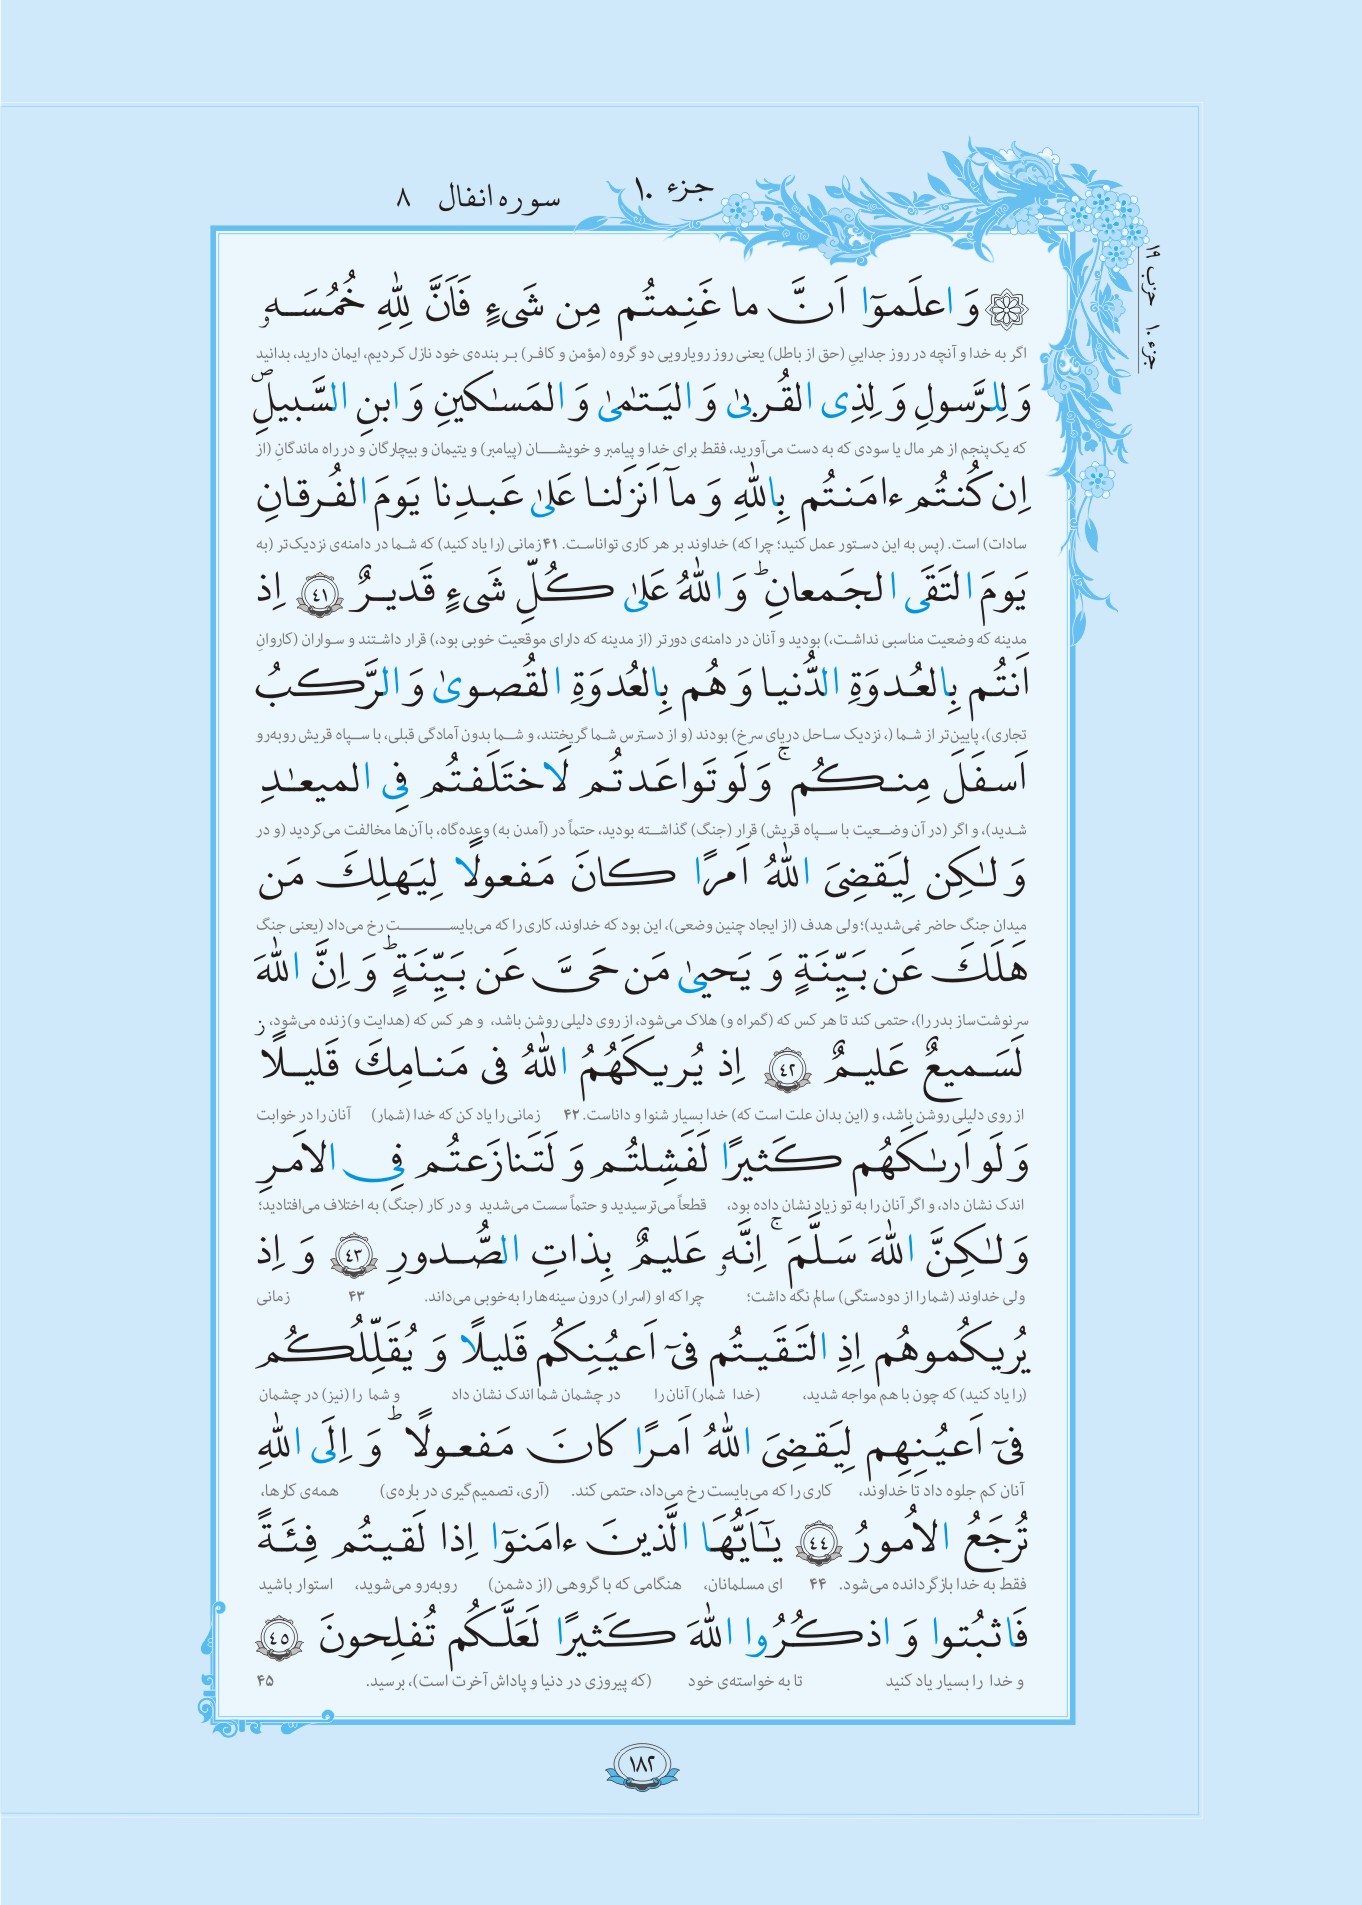 جزء ۱۰
سوره انفال ۸
جزء ۱۰ حزب ۱۹
۞ وَ اعلَموٓا اَنَّ ما غَنِمتُم مِن شَیءٍ فَاَنَّ لِلّٰهِ خُمُسَهٗ
اگر به خدا و آنچه در روز جداییِ (حق از باطل) یعنی روز رویارویی دو گروه (مؤمن و کافر) بر بنده‌ی خود نازل کردیم، ایمان دارید، بدانید
وَ لِلرَّسولِ وَ لِذِی القُربیٰ وَ الیَتٰمیٰ وَ المَسٰکینِ وَ ابنِ السَّبیلِ ۖ
که یک‌پنجم از هر مال یا سودی که به دست می‌آورید، فقط برای خدا و پیامبر و خویشان (پیامبر) و یتیمان و بیچارگان و در راه ماندگانِ (از
اِن کُنتُم ءامَنتُم بِاللّٰهِ وَ مآ اَنزَلنا عَلیٰ عَبدِنا یَومَ الفُرقانِ
سادات) است. (پس به این دستور عمل کنید؛ چرا که) خداوند بر هر کاری تواناست. ۴۱ زمانی (را یاد کنید) که شما در دامنه‌ی نزدیک‌تر (به
یَومَ التَقَی الجَمعانِ ؕ وَ اللّٰهُ عَلیٰ کُلِّ شَیءٍ قَدیرٌ ﴿٤١﴾ اِذ
مدینه که وضعیت مناسبی نداشت،) بودید و آنان در دامنه‌ی دورتر (از مدینه که دارای موقعیت خوبی بود،) قرار داشتند و سواران (کاروانِ
اَنتُم بِالعُدوَةِ الدُّنیا وَ هُم بِالعُدوَةِ القُصویٰ وَ الرَّکبُ
تجاری)، پایین‌تر از شما (، نزدیک ساحل دریای سرخ) بودند (و از دسترس شما گریختند، و شما بدون آمادگی قبلی، با سپاه قریش روبه‌رو
اَسفَلَ مِنکُم ۚ وَ لَو تَواعَدتُم لَاختَلَفتُم فِی المیعٰدِ
شدید)، و اگر (در آن وضعیت با سپاه قریش) قرار (جنگ) گذاشته بودید، حتماً در (آمدن به) وعده‌گاه، با آن‌ها مخالفت می‌کردید (و در
وَ لٰکِن لِیَقضِیَ اللّٰهُ اَمرًا کانَ مَفعولًا لِیَهلِکَ مَن
میدان جنگ حاضر نمی‌شدید)؛ ولی هدف (از ایجاد چنین وضعی)، این بود که خداوند، کاری را که می‌بایست رخ می‌داد (یعنی جنگ
هَلَکَ عَن بَیِّنَةٍ وَ یَحییٰ مَن حَیَّ عَن بَیِّنَةٍ ؕ وَ اِنَّ اللّٰهَ
سرنوشت‌ساز بدر را)، حتمی کند تا هر کس که (گمراه و) هلاک می‌شود، از روی دلیلی روشن باشد، و هر کس که (هدایت و) زنده می‌شود،
لَسَمیعٌ عَلیمٌ ﴿٤٢﴾ اِذ یُریکَهُمُ اللّٰهُ فی مَنامِکَ قَلیلًا ز
از روی دلیلی روشن باشد، و (این بدان علت است که) خدا بسیار شنوا و داناست. ۴۲ زمانی را یاد کن که خدا (شمار) آنان را در خوابت
وَ لَو اَرىٰکَهُم کَثیرًا لَفَشِلتُم وَ لَتَنازَعتُم فِی الاَمرِ
اندک نشان داد، و اگر آنان را به تو زیاد نشان داده بود، قطعاً می‌ترسیدید و حتماً سست می‌شدید و در کار (جنگ) به اختلاف می‌افتادید؛
وَ لٰکِنَّ اللّٰهَ سَلَّمَ ۚ اِنَّهٗ عَلیمٌ بِذاتِ الصُّدورِ ﴿٤٣﴾ وَ اِذ
ولی خداوند (شما را از دودستگی) سالم نگه داشت؛ چرا که او (اسرار) درون سینه‌ها را به‌خوبی می‌داند. ۴۳ زمانی
یُریکُموهُم اِذِ التَقَیتُم فیٓ اَعیُنِکُم قَلیلًا وَ یُقَلِّلُکُم
(را یاد کنید) که چون با هم مواجه شدید، (خدا شمار) آنان را در چشمان شما اندک نشان داد و شما را (نیز) در چشمان
فیٓ اَعیُنِهِم لِیَقضِیَ اللّٰهُ اَمرًا کانَ مَفعولًا ؕ وَ اِلَی اللّٰهِ
آنان کم جلوه داد تا خداوند، کاری را که می‌بایست رخ می‌داد، حتمی کند. (آری، تصمیم‌گیری در باره‌ی) همه‌ی کارها،
تُرجَعُ الاُمورُ ﴿٤٤﴾ یٰٓاَیُّهَا الَّذینَ ءامَنوٓا اِذا لَقیتُم فِئَةً
فقط به خدا بازگردانده می‌شود. ۴۴ ای مسلمانان، هنگامی که با گروهی (از دشمن) روبه‌رو می‌شوید، استوار باشید
فَاثبُتوا وَ اذکُرُوا اللّٰهَ کَثیرًا لَعَلَّکُم تُفلِحونَ ﴿٤٥﴾
و خدا را بسیار یاد کنید تا به خواسته‌ی خود (که پیروزی در دنیا و پاداش آخرت است)، برسید. ۴۵
۱۸۲